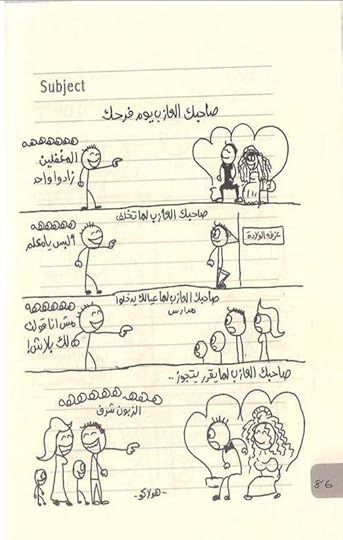 Subject
صاحبك العازب يوم فرحك
ههههههه
المغفلين
زادوا واحد
صاحبك العازب لما تخلف
هههههه
إلبس يا معلم
غرفة الولادة
صاحبك العازب لما عيالك يدخلوا
مدارس
هههههه
مش انا قولت
لك بلاش!
صاحبك العازب لما يقرر يتجوز ..
ههههههههه
الزبون شرف
-هولاكو-
86